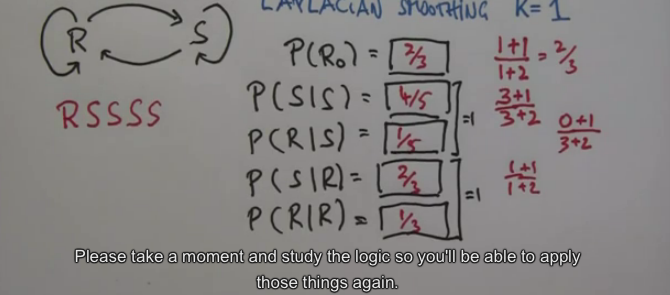 LAPLACIAN SMOOTHING K=1
R S
P(R₀) = 2/3 1+1/1+2 = 2/3
RSSSS
P(S|S) = 4/5 =1 3+1/3+2
P(R|S) = 1/5 0+1/3+2
P(S|R) = 2/3 =1 1+1/1+2
P(R|R) = 1/3
Please take a moment and study the logic so you'll be able to apply
those things again.